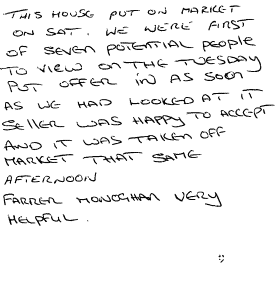 THIS HOUSE PUT ON MARKET
ON SAT. WE WERE FIRST
OF SEVEN POTENTIAL PEOPLE
TO VIEW ON THE TUESDAY
PUT OFFER IN AS SOON
AS WE HAD LOOKED AT IT
SELLER WAS HAPPY TO ACCEPT
AND IT WAS TAKEN OFF
MARKET THAT SAME
AFTERNOON
FARRER MONOGHAN VERY
HELPFUL.